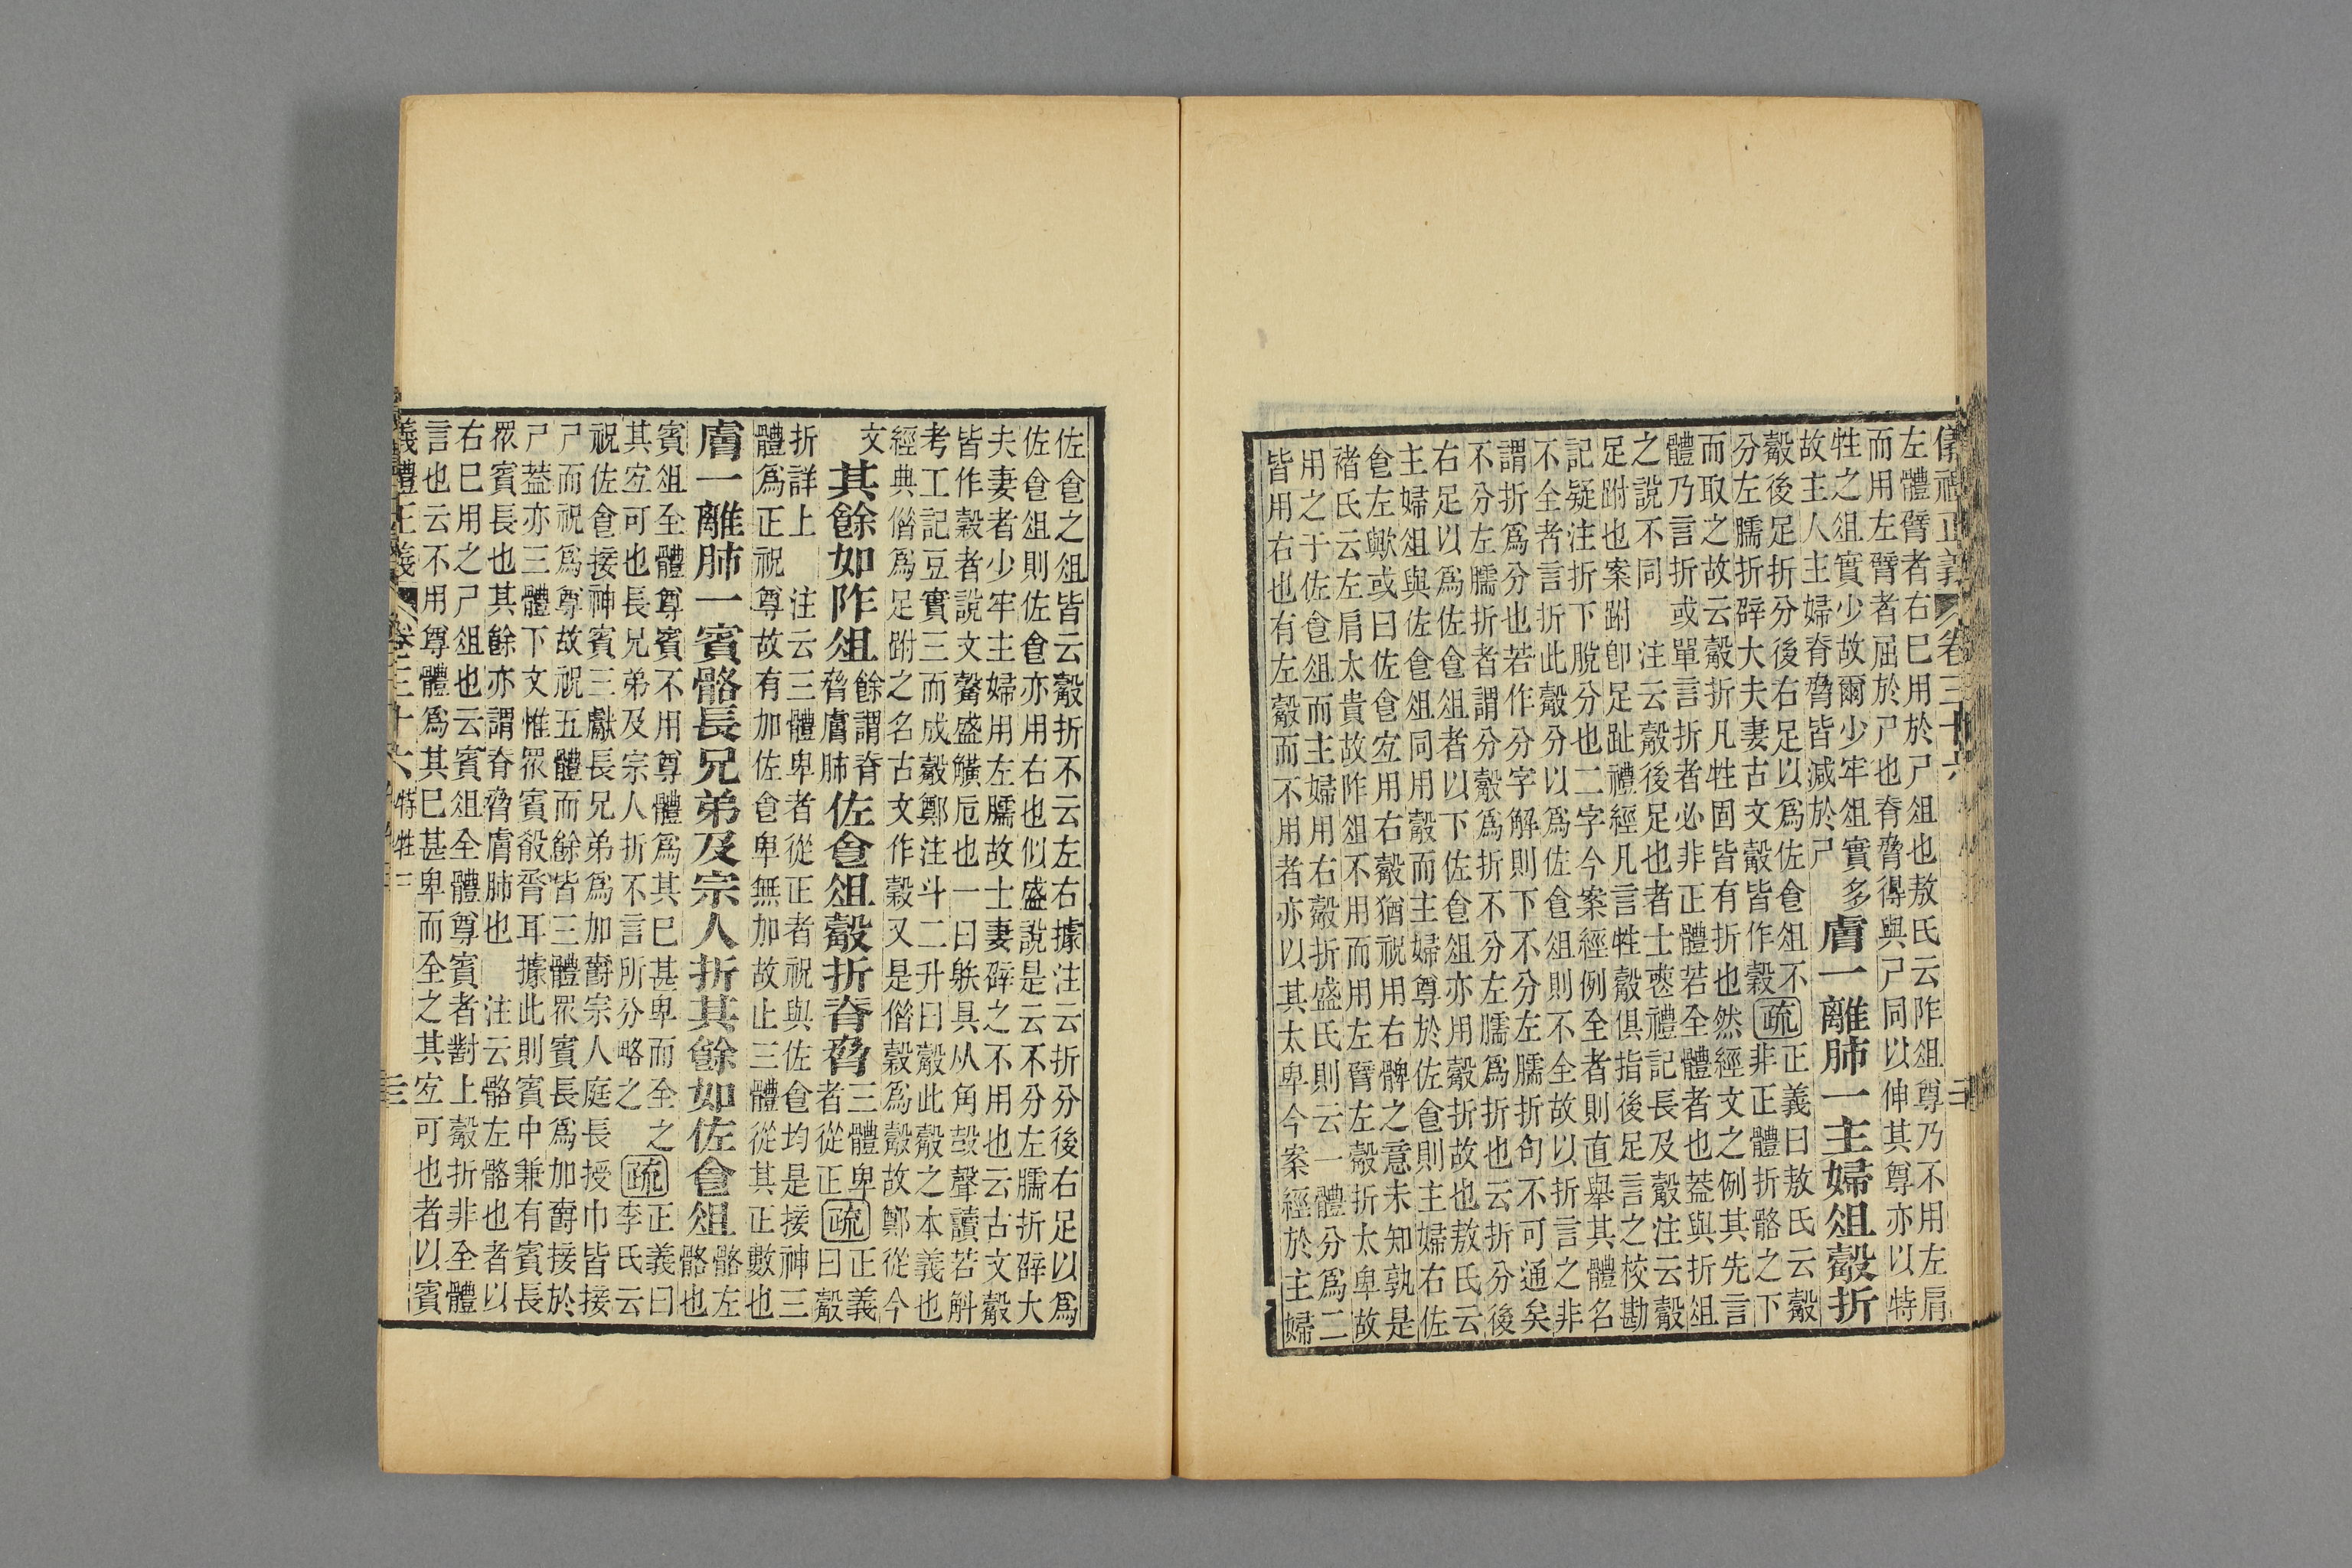 儀禮正義 卷三十六
左體臂者右已用於尸俎也敖氏云阼俎尊乃不用左肩
而用左臂者屈於尸也脊脅得與尸同以伸其尊亦以特
牲之俎實少故爾少牢俎實多
故主人主婦脊脅皆減於尸
膚一離肺一主婦俎觳折
觳後足折分後右足以爲佐食俎不
分左臑折辟大夫妻古文觳皆作穀
疏
正義曰敖氏云觳
非正體折骼之下
而取之故云觳折凡牲固皆有折也然經文之例其先言
體乃言折或單言折者必非正體若全體者也蓋與折俎
之說不同 注云觳後足也者士喪禮記長及觳注云觳
足跗也案跗卽足趾禮經凡言牲觳俱指後足言之校勘
記疑注折下脫分也二字今案經例全者則直舉其體名
不全者言折此觳分以爲佐食俎則不全故以折言之非
謂折爲分也若作分字解則下不分左臑折句不可通矣
不分左臑折者謂分觳爲折不分左臑爲折也云折分後
右足以爲佐食俎者以下佐食俎亦用觳折故也敖氏云
主婦俎與佐食俎同用觳而主婦尊於佐食則主婦右佐
食左歟或曰佐食宜用右觳猶祝用右髀之意未知孰是
褚氏云左肩太貴故阼俎不用而用左臂左觳折太卑故
用之于佐食俎而主婦用右觳折盛氏則云一體分爲二
皆用右也有左觳而不用者亦以其太卑今案經於主婦
佐食之俎皆云觳折不云左右據注云折分後右足以爲
佐食俎則佐食亦用右也似盛說是云不分左臑折辟大
夫妻者少牢主婦用左臑故士妻辟之不用也云古文觳
皆作穀者說文觳盛觵卮也一曰躲具从角𣪊聲讀若斛
考工記豆實三而成觳鄭注斗二升曰觳此觳之本義也
經典借爲足跗之名古文作穀又是借穀爲觳故鄭從今
文
其餘如阼俎
餘謂脊
脅膚肺
佐食俎觳折脊脅
三體卑
者從正
疏
正義
曰觳
折詳上 注云三體卑者從正者祝與佐食均是接神三
體爲正祝尊故有加佐食卑無加故止三體從其正數也
膚一離肺一賓骼長兄弟及宗人折其餘如佐食俎
骼左
骼也
賓俎全體尊賓不用尊體爲其已甚卑而全之
其宜可也長兄弟及宗人折不言所分略之
疏
正義曰
李氏云
祝佐食接神賓三獻長兄弟爲加爵宗人庭長授巾皆接
尸而祝爲尊故祝五體而餘皆三體眾賓長爲加爵接於
尸蓋亦三體下文惟眾賓殽脀耳據此則賓中兼有賓長
眾賓長也其餘亦謂脊脅膚肺也 注云骼左骼也者以
右已用之尸俎也云賓俎全體尊賓者對上觳折非全體
言也云不用尊體爲其已甚卑而全之其宜可也者以賓
義禮正義 卷三十六 特牲 三